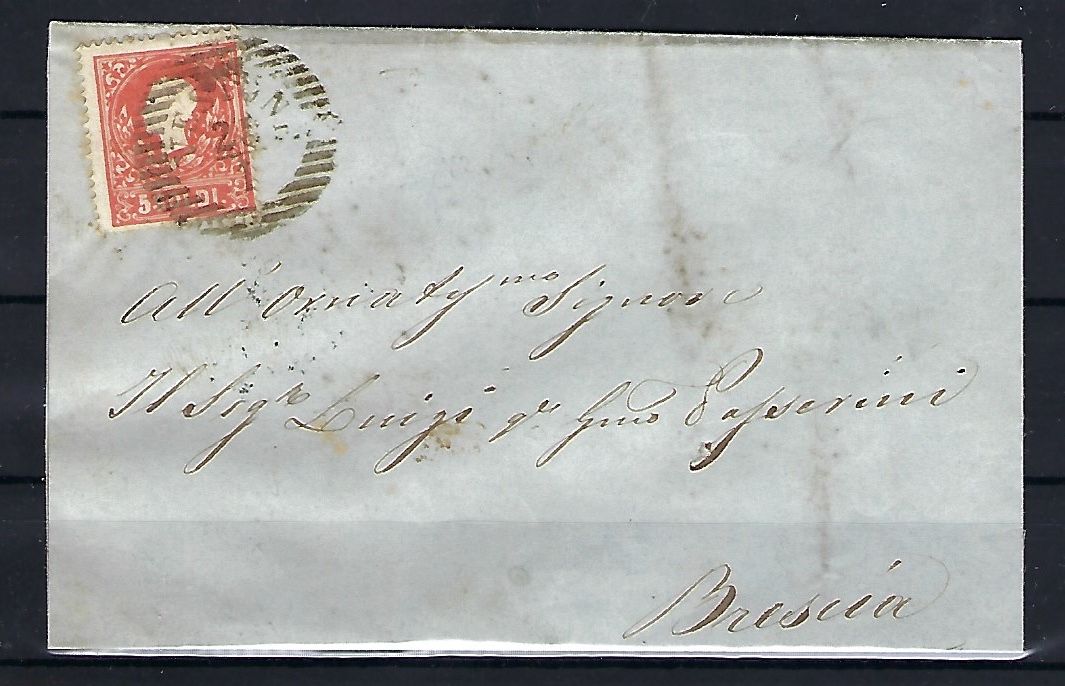 5 DI.
All' Ornatis.mo Signore
Il Sigr Luigi qm Passerini
Brescia